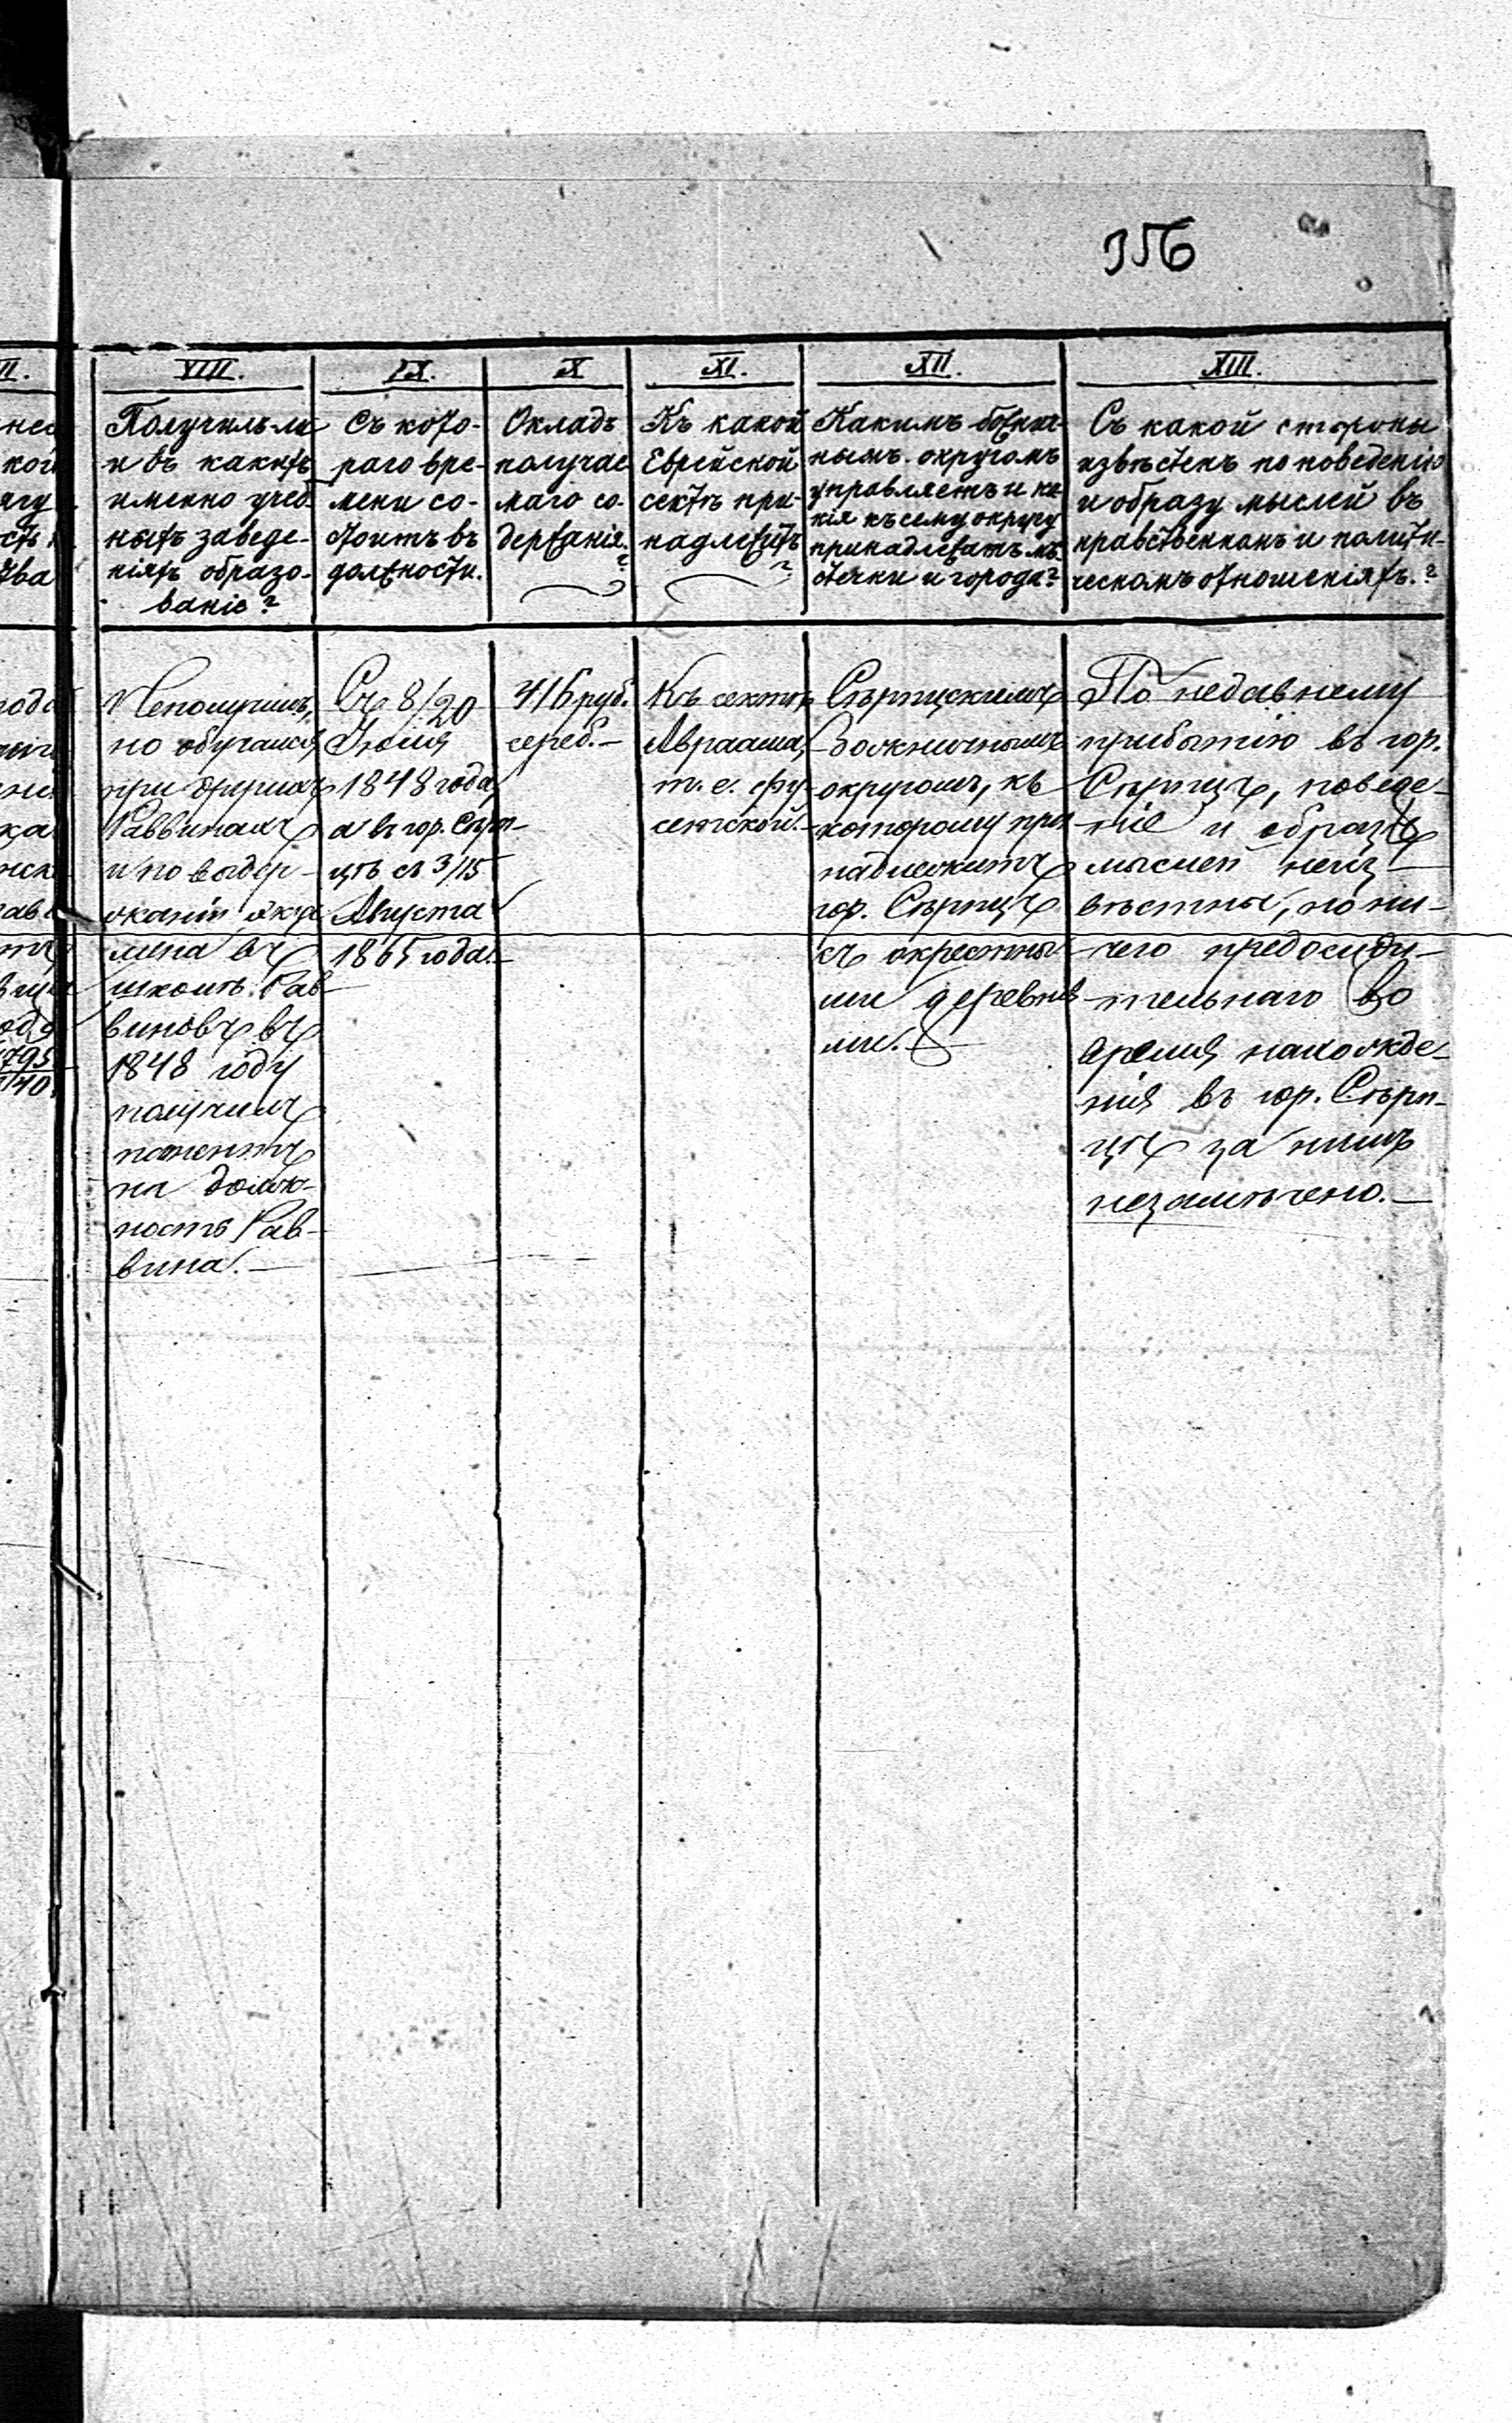 356
VIII.
Получилъ-ли
и въ какихъ
именно учеб-
ныхъ заведе-
нiяхъ образо-
ванiе?
IX.
Съ кото-
раго вре-
мени со-
стоитъ въ
должности.
X
Окладъ
получае
маго со-
держанiя.
?
XI.
Къ какой
Еврейской
сектѣ при-
надлежитъ
?
XII.
Какимъ божни-
нымъ округомъ
управляетъ и ка-
кiя къ сему округу
принадлежатъ мѣ-
стечки и города?
XIII.
Съ какой стороны
извѣстенъ по поведенiю
и образу мыслей въ
нравственномъ и полити-
ческомъ отношенiяхъ.?
Неполучилъ,
но обучался
при другихъ
Раввинахъ
и по выдер-
жанiи экза
мена въ
школѣ Рав-
виновъ въ
1848 году
получилъ
патентъ
на долж-
ность Рав-
вина.—
Съ 8/20
Iюля
1848 года,
а въ гор. Сѣрп-
цѣ съ 3/15
Августа
1865 года.—
416 руб.
сереб.—
Къ сектѣ
Авраама,
т. е. фу-
сетской.—
Сѣрпцскимъ
Божничнымъ
округомъ, къ
которому при
надлежитъ
гор. Сѣрпцъ
съ окрестны-
ми деревня
ми.—
По недавнему
прибытiю въ гор.
Сѣрпцъ, поведе-
нiе и образъ
мыслей неиз-
вѣстны, но ни-
чего предосуди-
тельнаго во
время нахожде-
нiя въ гор. Сѣрп-
цѣ за нимъ
незамѣчено.—